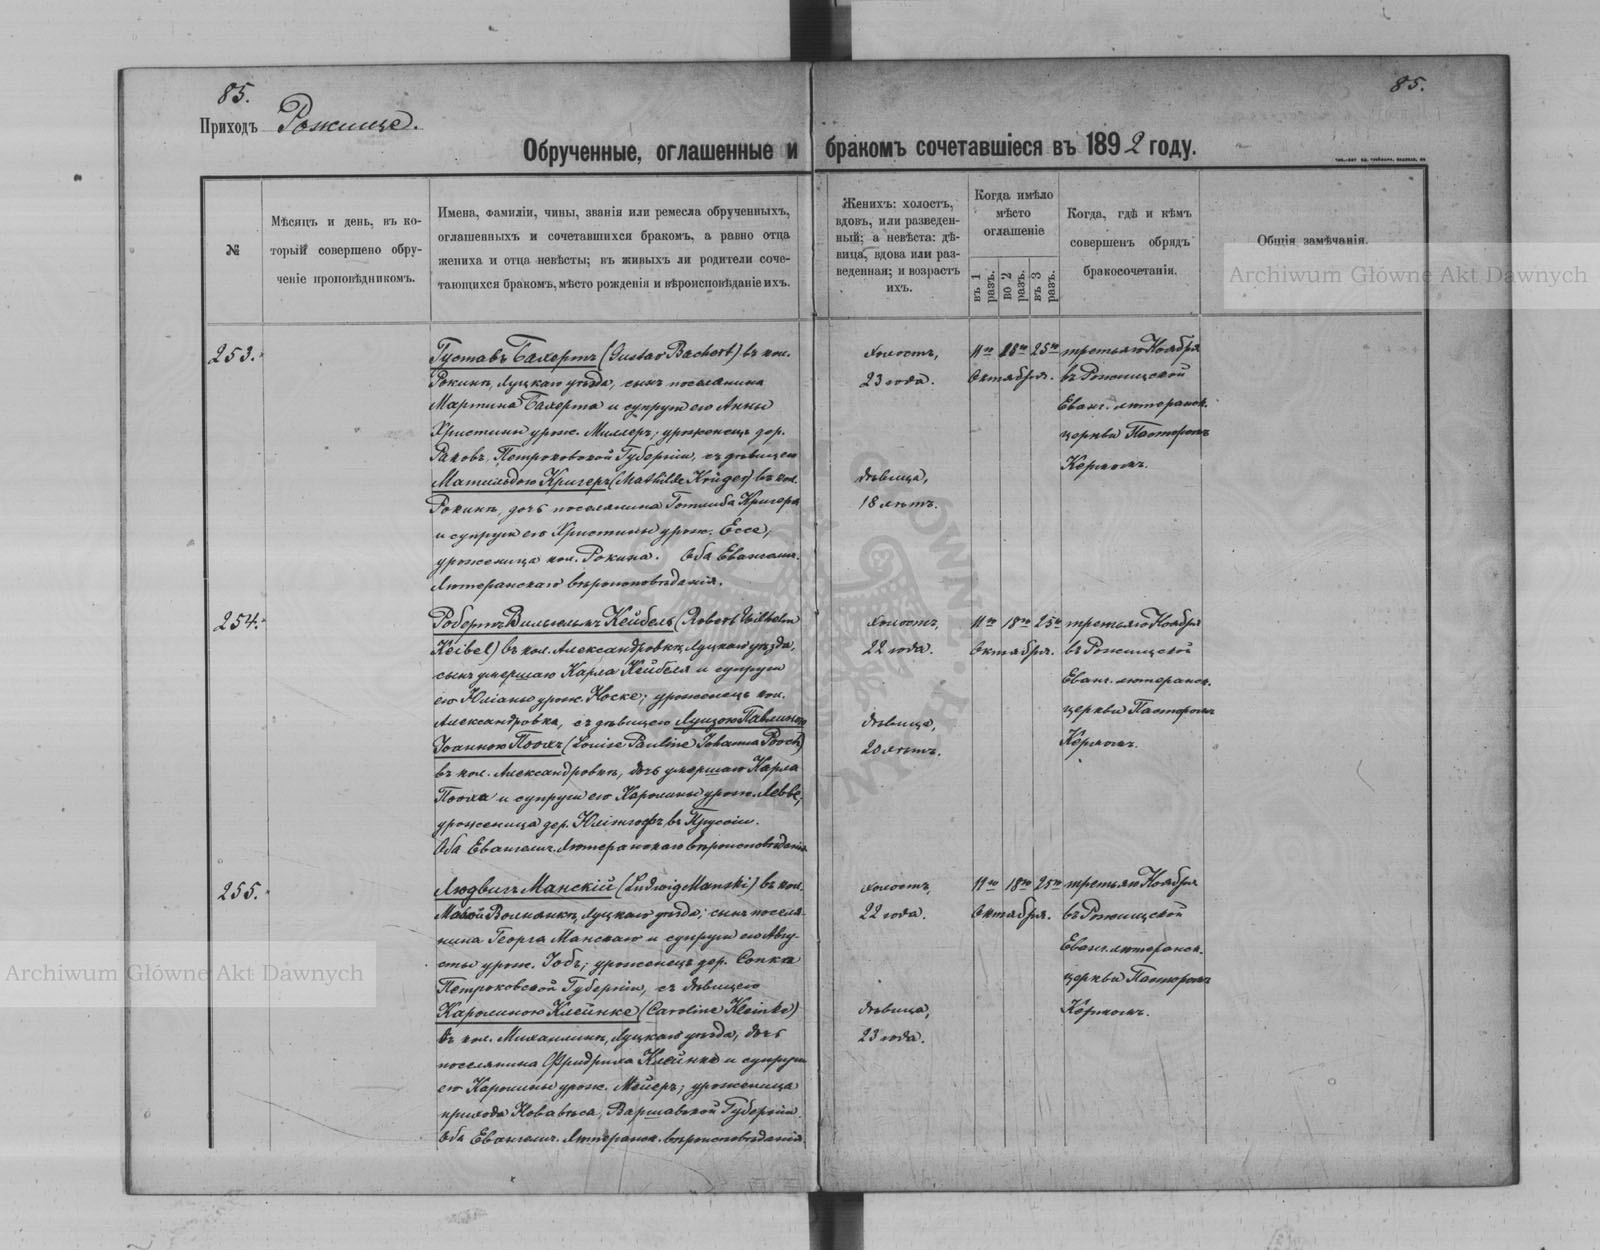 85.
85.
Приходъ Рожище.
Обрученные, оглашенные и бракомъ сочетавшіеся въ 1892 году.
№
Мѣсяцъ и день, въ ко-
торый совершено обру-
ченіе проповѣдникомъ.
Имена, фамиліи, чины, званія или ремесла обрученныхъ,
оглашенныхъ и сочетавшихся бракомъ, а равно отца
жениха и отца невѣсты; въ живыхъ ли родители соче-
тающихся бракомъ, мѣсто рожденія и вѣроисповѣданіе ихъ.
Женихъ: холостъ,
вдовъ, или разведен-
ный; а невѣста: дѣ-
вица, вдова или раз-
веденная; и возрастъ
ихъ.
Когда имѣло
мѣсто
оглашеніе
въ 1 разъ.
во 2 разъ.
въ 3 разъ.
Когда, гдѣ и кѣмъ
совершенъ обрядъ
бракосочетанія.
Общія замѣчанія.
Archiwum Główne Akt Dawnych
253.
Густавъ Бахертъ (Gustav Bachert) въ кол.
Рокинѣ, Луцкаго уѣзда, сынъ поселянина
Мартина Бахерта и супруги его Анны
Христины урож. Миллеръ; уроженецъ дер.
Раковъ, Петроковской Губерніи, съ дѣвицею
Матильдою Кригеръ (Mathilde Krüger) въ кол.
Рокинѣ, дочь поселянина Готлиба Кригера
и супруги его Христины урож. Ессе,
уроженица кол. Рокина. Оба Евангелич.
Лютеранскаго вѣроисповѣданія.
холостъ,
23 года.
дѣвица,
18 лѣтъ.
11го 18го 25го
Октября.
третьяго Ноября
въ Рожищской
Еванг. лютеранск.
церкви Пасторомъ
Керномъ.
254.
Робертъ Вильгельмъ Кейбель (Robert Wilhelm
Keibel) въ кол. Александровкѣ, Луцкаго уѣзда,
сынъ умершаго Карла Кейбеля и супруги
его Юліаны урож. Носке; уроженецъ кол.
Александровка, съ дѣвицею Луизою Павлиною
Іоанною Поохъ (Louise Pauline Johanna Pooch)
въ кол. Александровкѣ, дочь умершаго Карла
Пооха и супруги его Каролины урож. Леббе,
уроженица дер. въ Пруссіи.
Оба Евангелич. Лютеранскаго вѣроисповѣданія.
холостъ,
22 года.
дѣвица,
20 лѣтъ.
11го 18го 25го
Октября.
третьяго Ноября
въ Рожищской
Еванг. лютеранск.
церкви Пасторомъ
Керномъ.
255.
Людвигъ Манскій (Ludwig Manski) въ кол.
Малой Волнянкѣ, Луцкаго уѣзда; сынъ поселя-
нина Георга Манскаго и супруги его Авгу-
сты урож. Іобъ; уроженецъ дер. Сопка
Петроковской Губерніи, съ дѣвицею
Каролиною Клейнке (Caroline Kleinke)
въ кол. Михалинѣ, Луцкаго уѣзда, дочь
поселянина Фридриха Клейнке и супруги
его Каролины урож. Мейеръ; уроженица
прихода Новавеса, Варшавской Губерніи.
Оба Евангелич. Лютеранск. вѣроисповѣданія.
холостъ,
22 года.
дѣвица,
23 года.
11го 18го 25го
Октября.
третьяго Ноября
въ Рожищской
Еванг. лютеранск.
церкви Пасторомъ
Керномъ.
Archiwum Główne Akt Dawnych